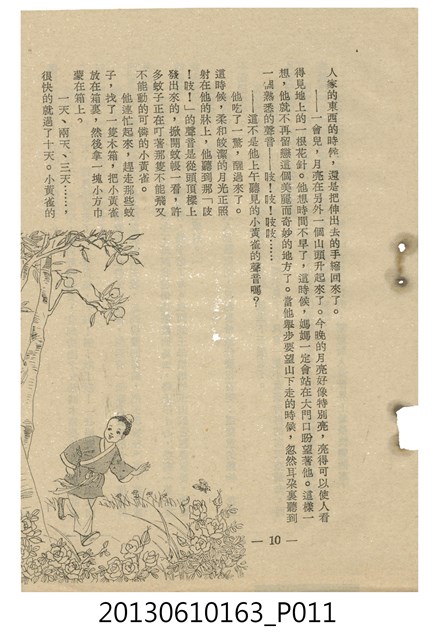 人家的東西的時候，還是把伸出去的手縮回來了。
——一會兒，月亮在另外一個山頭升起來了。今晚的月亮好像特別亮，亮得可以使人看
得見地上的一根花針。他想時間不早了，這時候，媽媽一定會站在大門口盼望著他。這樣一
想，他就不再留戀這個美麗而奇妙的地方了。當他舉步要望山下走的時候，忽然耳朶裏聽到
一個熟悉的聲音——吱！吱！吱吱……
——這不是他上午聽見的小黃雀的聲音嗎？
他吃了一驚，醒過來了。
這時候，柔和皎潔的月光正照
射在他的牀上，他聽到那「吱
！吱！」的聲音是從頭頂樑上
發出來的，掀開蚊帳一看，許
多蚊子正在叮著那隻不能飛又
不能動的可憐的小黃雀。
他連忙起來，趕走那些蚊
子，找了一隻木箱，把小黃雀
放在箱裏，然後拿一塊小方巾
蒙在箱上。
一天、兩天、三天……，
很快的就過了十天。小黃雀的
— 10 —
20130610163_P011